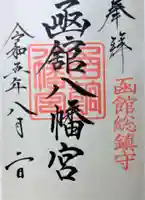 奉拝
函館総鎮守
函館八幡宮
令和五年八月二日